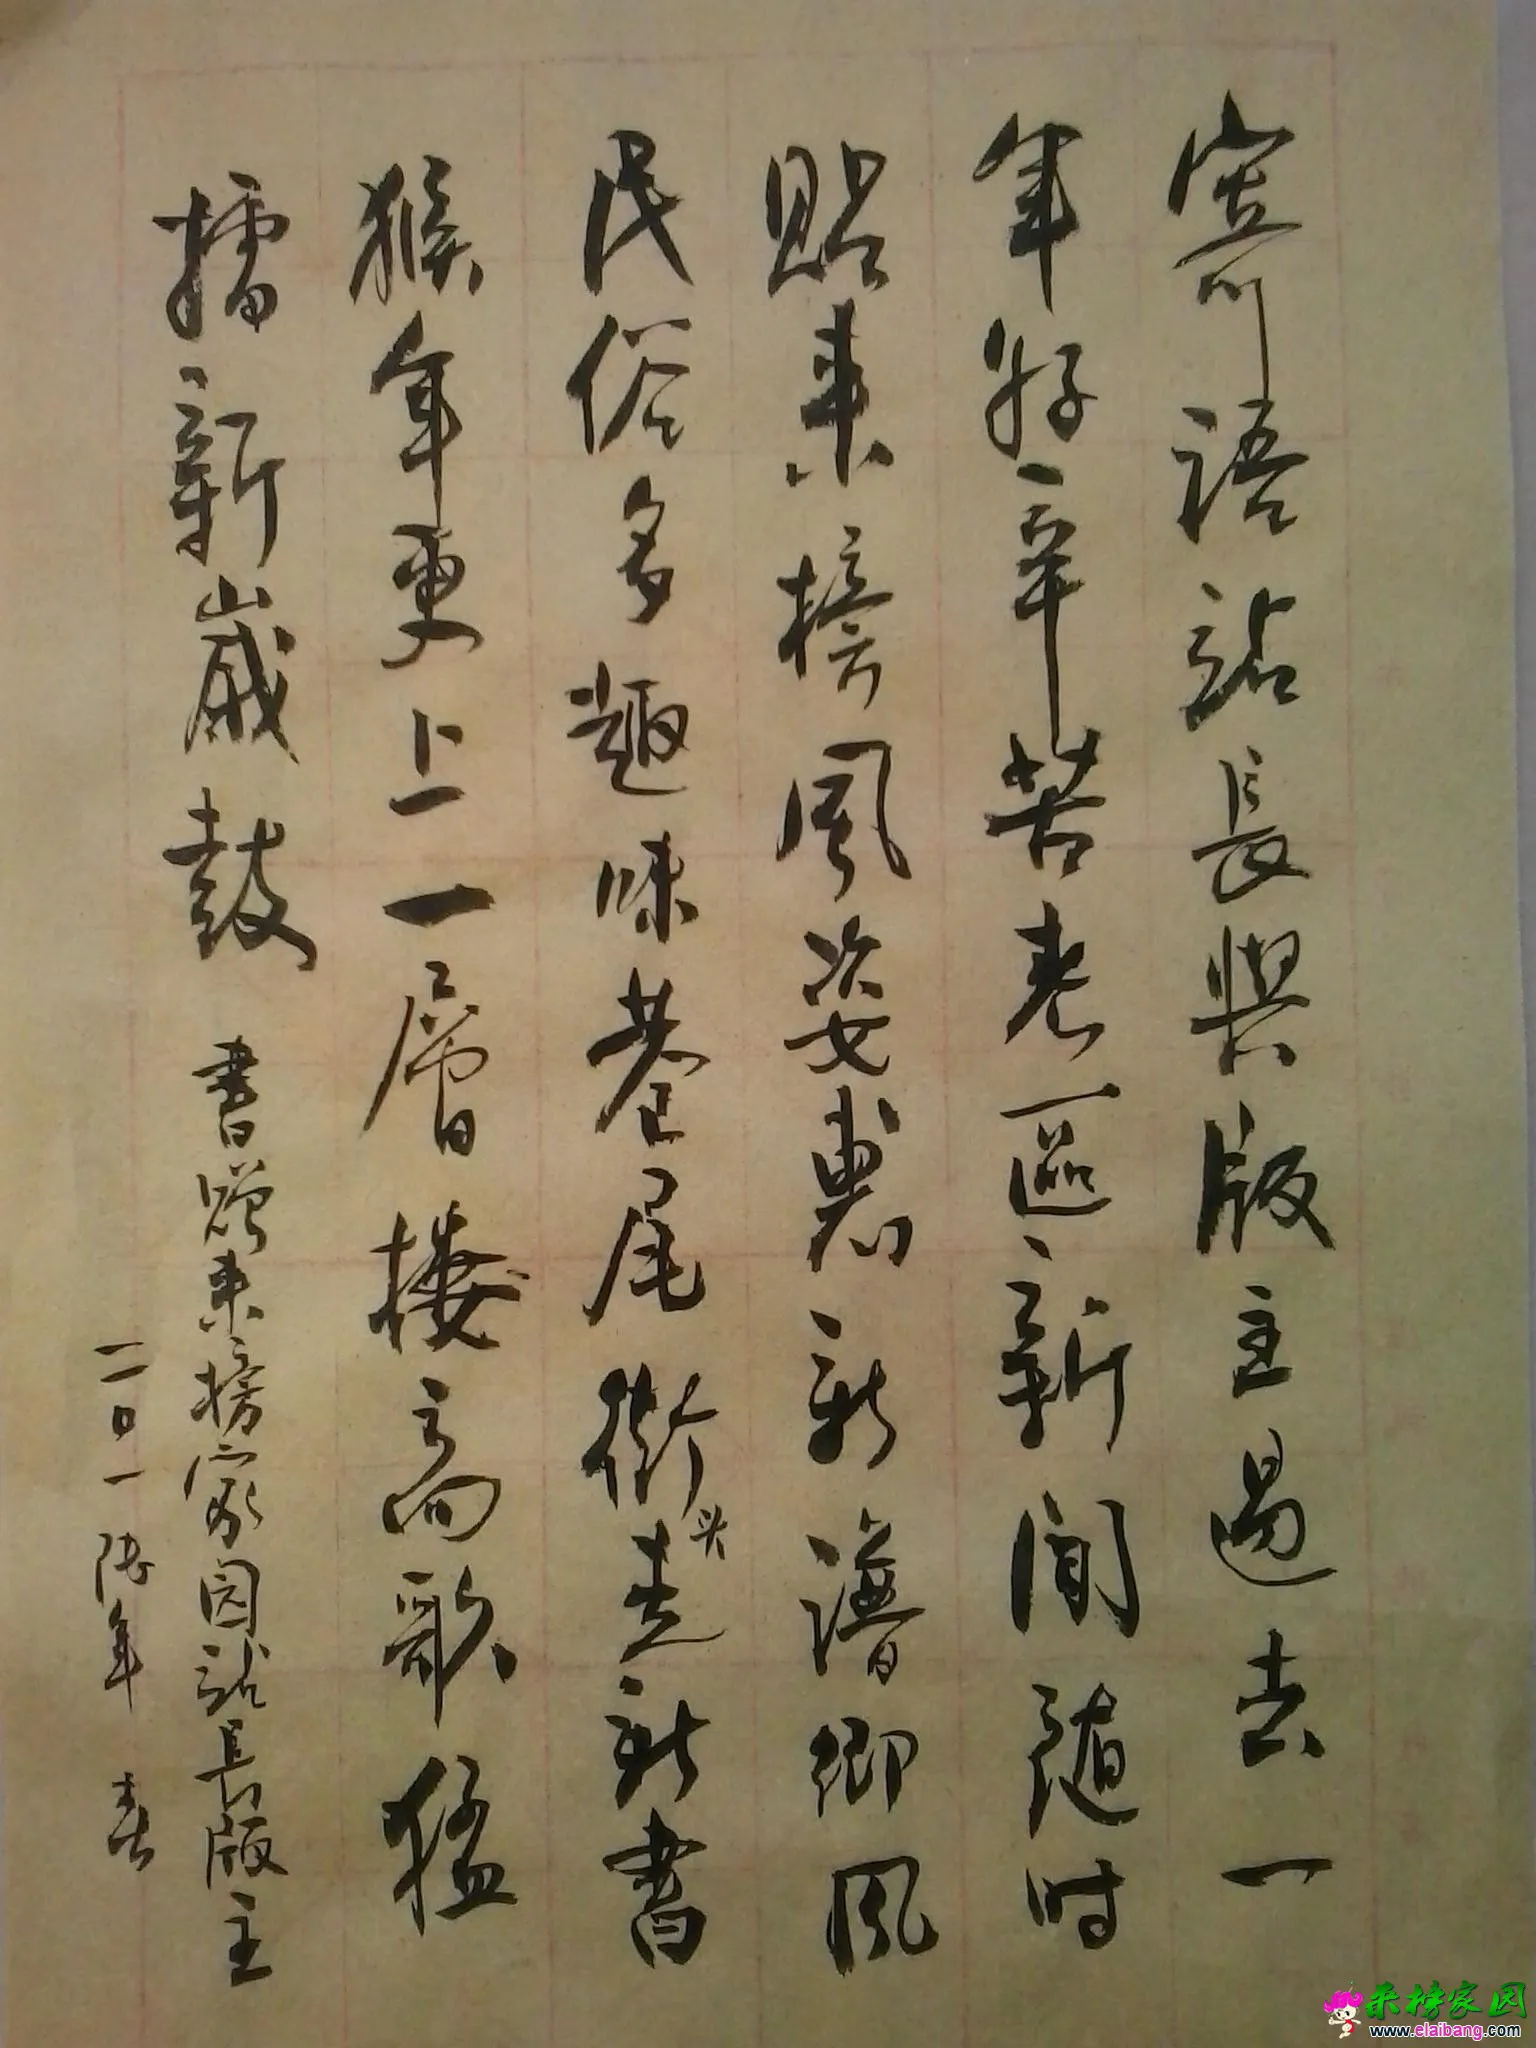 寄語站長與版主過去一
年好辛苦老區新聞随時
貼来榜風姿新譜鄉風
民俗多趣味巷尾街头新書
猴年更上一層樓高歌猛
擂新歲鼓
書贈来榜家园站長版主
二〇一陆年 春
来榜家园
www.elaibang.com